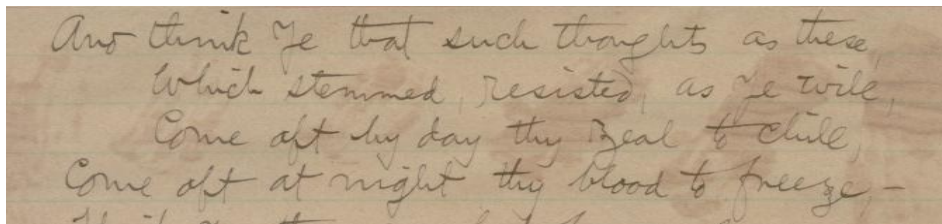 And think Ye that such thoughts as these,
Which stemmed, resisted, as Ye will,
Come oft by day thy zeal to chill,
Come oft at night thy blood to freeze, —